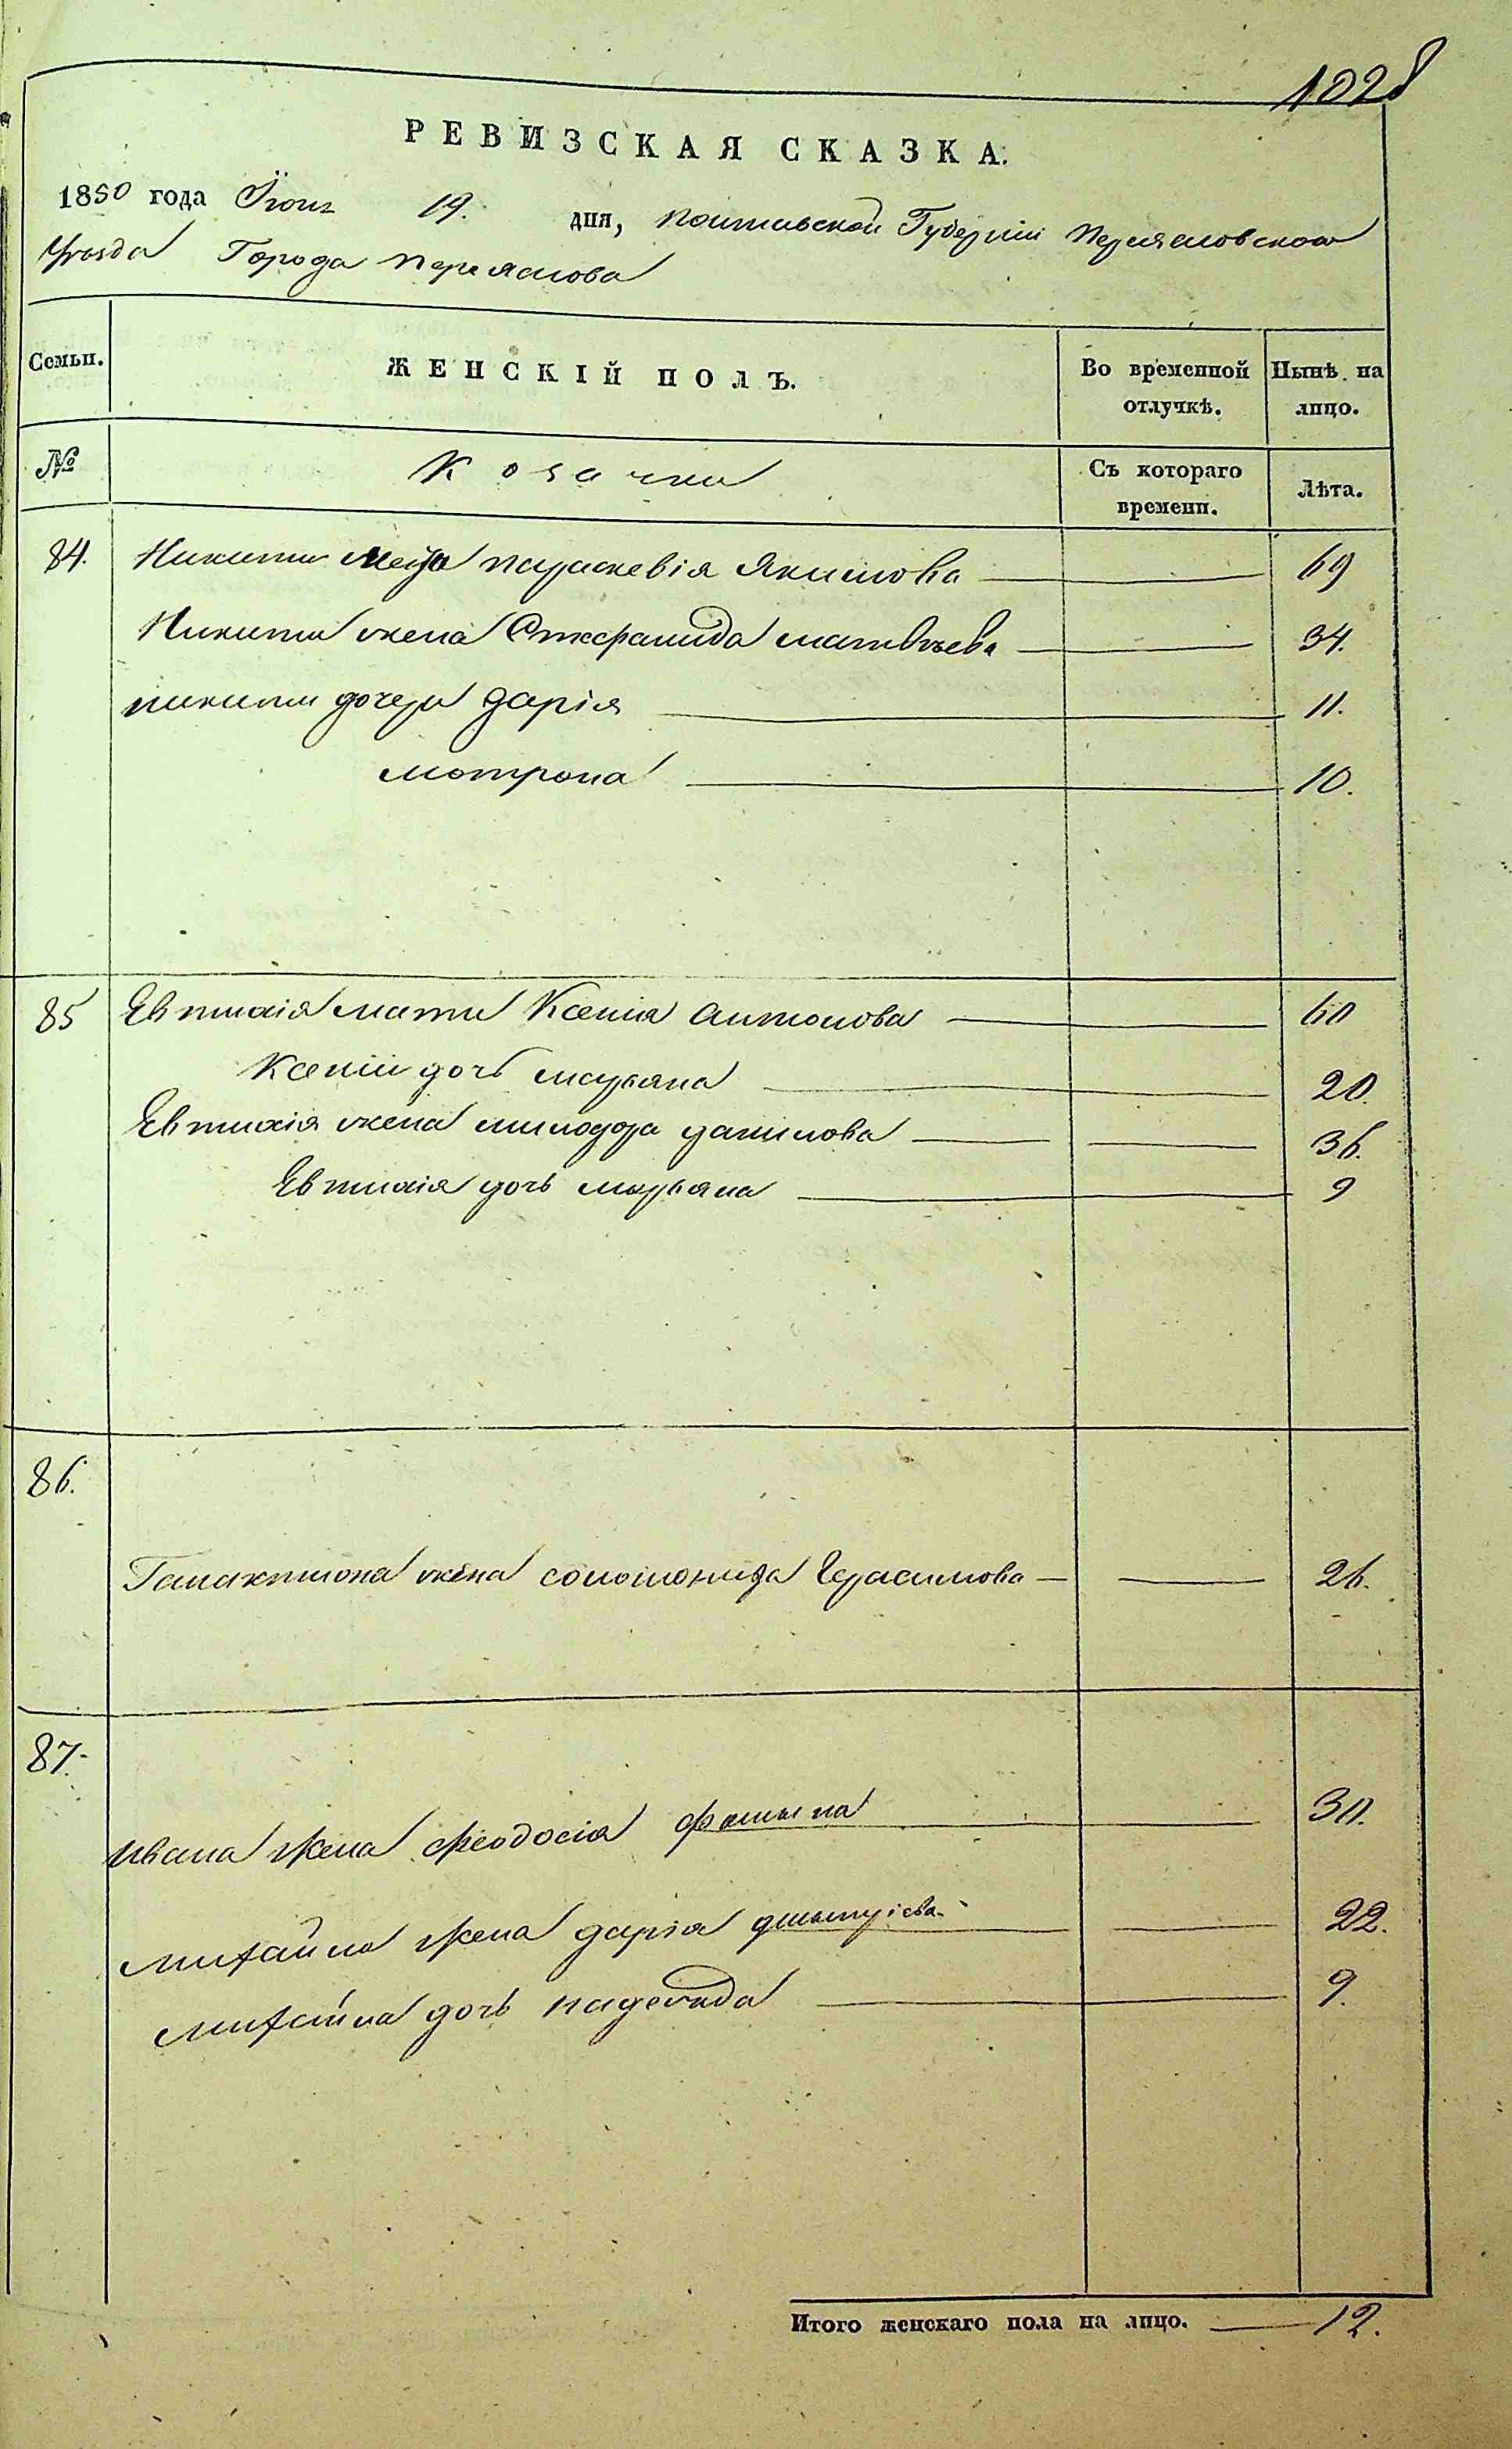 1028
РЕВИЗСКАЯ СКАЗКА.
1850 года Іюня 19. дня, Полтавской Губерніи Переяславского
Уезда Города Переяслова
Семьи. ЖЕНСКІЙ ПОЛЪ. Во временной отлучкѣ. Нынѣ на лицо.
№ Козачки Съ котораго времени. Лѣта.
84. Никиты Параскевія Якимова 69
Никиты жена Стефанида матвѣева 34.
никиты дочери Дарія 11.
мотрона 10.
85 Евтихія мати Ксенія антонова 60
Ксеніи дочь марьяна 20.
Евтихія жена милодора данилова 36.
Евтихія дочь марьяна 9
86.
Галактиона жена соломонида Герасимова 26.
87.
Ивана жена феодосія фомына 30.
михайла жена дарія дмытріева 22.
михайла дочь надежда 9.
Итого женскаго пола на лицо. 12.